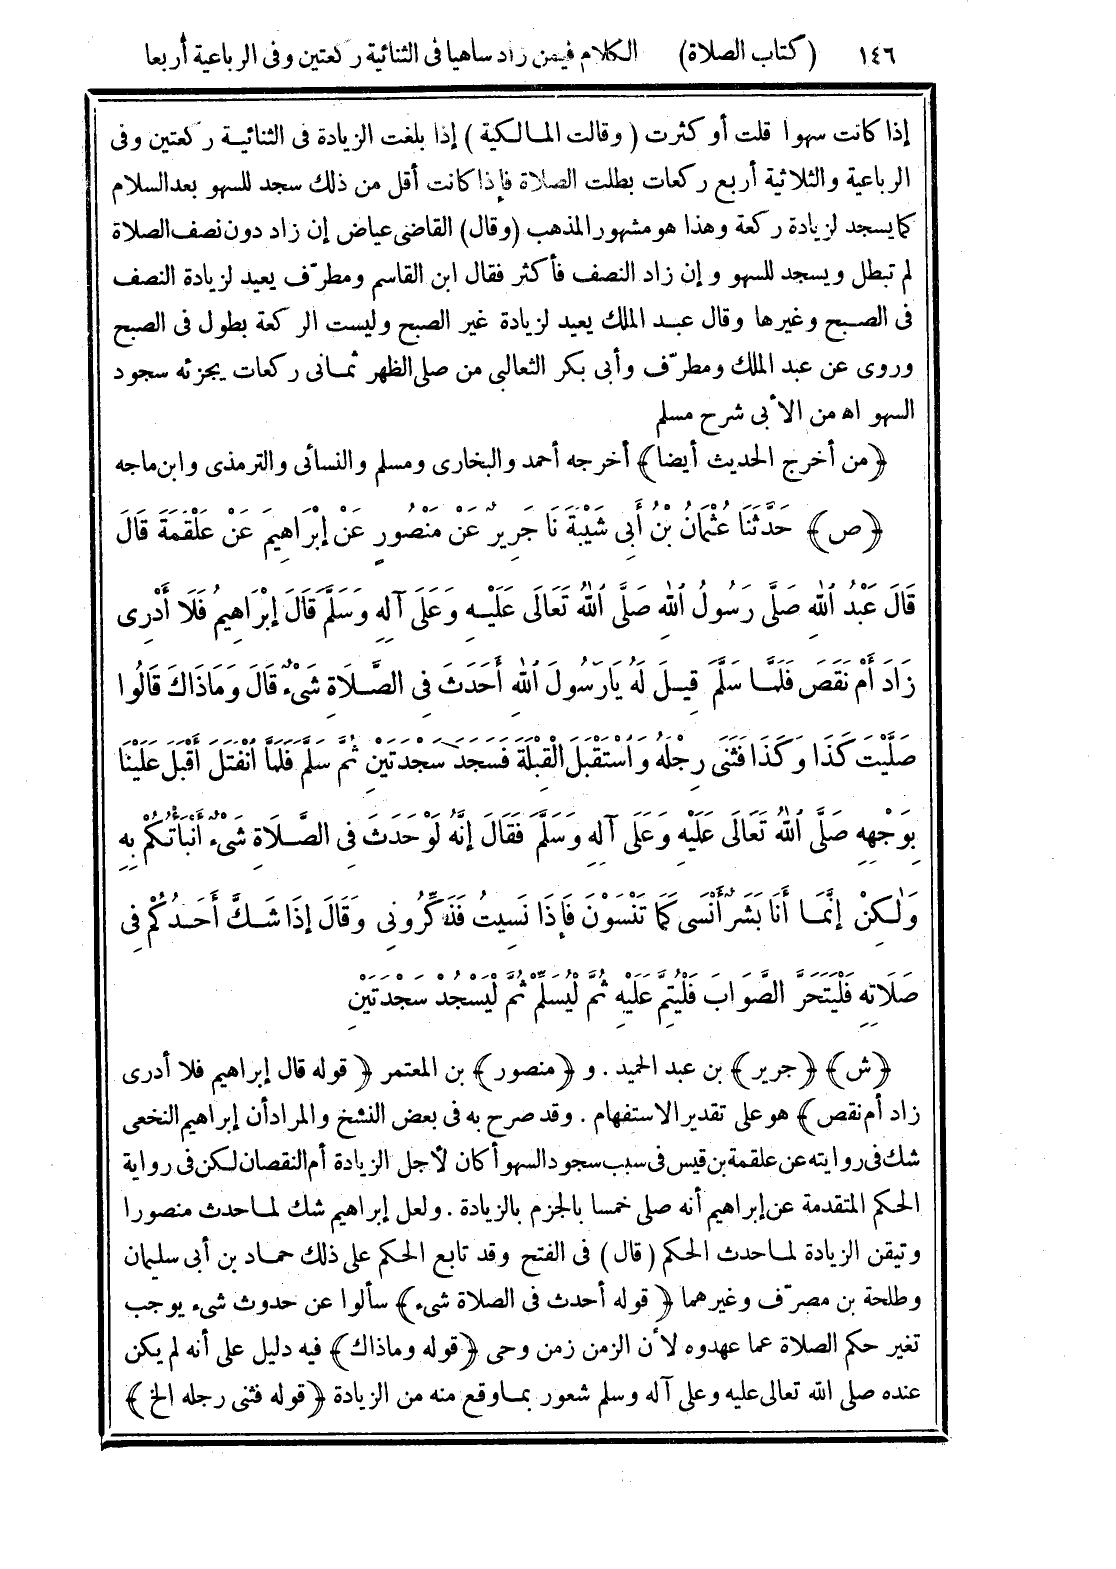 ١٤٦ (كتاب الصلاة) الكلام فيمن زاد ساهيا فى الثنائية ركعتين وفى الرباعية أربعا
إذا كانت سهوا قلت أو كثرت (وقالت المالكية) إذا بلغت الزيادة فى الثنائية ركعتين وفى
الرباعية والثلاثية أربع ركعات بطلت الصلاة فإذا كانت أقل من ذلك سجد للسهو بعد السلام
كما يسجد لزيادة ركعة وهذا هو مشهور المذهب (وقال) القاضى عياض إن زاد دون نصف الصلاة
لم تبطل ويسجد للسهو وإن زاد النصف فأكثر فقال ابن القاسم ومطرّف يعيد لزيادة النصف
فى الصبح وغيرها وقال عبد الملك يعيد لزيادة غير الصبح وليست الركعة بطول فى الصبح
وروى عن عبد الملك ومطرّف وأبى بكر الثعالبى من صلى الظهر ثمانى ركعات يجزئه سجود
السهو اه من الأبى شرح مسلم
﴿من أخرج الحديث أيضا﴾ أخرجه أحمد والبخارى ومسلم والنسائى والترمذى وابن ماجه
﴿ص﴾ حَدَّثَنَا عُثْمَانُ بْنُ أَبِى شَيْبَةَ نَا جَرِيرٌ عَنْ مَنْصُورٍ عَنْ إِبْرَاهِيمَ عَنْ عَلْقَمَةَ قَالَ
قَالَ عَبْدُ اللهِ صَلَّى رَسُولُ اللهِ صَلَّى اللهُ تَعَالَى عَلَيْهِ وَعَلَى آلِهِ وَسَلَّمَ قَالَ إِبْرَاهِيمُ فَلَا أَدْرِى
زَادَ أَمْ نَقَصَ فَلَمَّا سَلَّمَ قِيلَ لَهُ يَا رَسُولَ اللهِ أَحَدَثَ فِى الصَّلَاةِ شَىْءٌ قَالَ وَمَا ذَاكَ قَالُوا
صَلَّيْتَ كَذَا وَكَذَا فَثَنَى رِجْلَهُ وَاسْتَقْبَلَ الْقِبْلَةَ فَسَجَدَ سَجْدَتَيْنِ ثُمَّ سَلَّمَ فَلَمَّا انْفَتَلَ أَقْبَلَ عَلَيْنَا
بِوَجْهِهِ صَلَّى اللهُ تَعَالَى عَلَيْهِ وَعَلَى آلِهِ وَسَلَّمَ فَقَالَ إِنَّهُ لَوْ حَدَثَ فِى الصَّلَاةِ شَىْءٌ أَنْبَأْتُكُمْ بِهِ
وَلَٰكِنْ إِنَّمَا أَنَا بَشَرٌ أَنْسَى كَمَا تَنْسَوْنَ فَإِذَا نَسِيتُ فَذَكِّرُونِى وَقَالَ إِذَا شَكَّ أَحَدُكُمْ فِى
صَلَاتِهِ فَلْيَتَحَرَّ الصَّوَابَ فَلْيُتِمَّ عَلَيْهِ ثُمَّ لْيُسَلِّمْ ثُمَّ لْيَسْجُدْ سَجْدَتَيْنِ
﴿ش﴾ ﴿جرير﴾ بن عبد الحميد. و ﴿منصور﴾ بن المعتمر ﴿قوله قال إبراهيم فلا أدرى
زاد أم نقص﴾ هو على تقدير الاستفهام. وقد صرح به فى بعض النسخ والمراد أن إبراهيم النخعى
شك فى روايته عن علقمة بن قيس فى سبب سجود السهو أكان لأجل الزيادة أم النقصان لكن فى رواية
الحكم المتقدمة عن إبراهيم أنه صلى خمسا بالجزم بالزيادة. ولعل إبراهيم شك لما حدث منصورا
وتيقن الزيادة لما حدث الحكم (قال) فى الفتح وقد تابع الحكم على ذلك حماد بن أبى سليمان
وطلحة بن مصرّف وغيرهما ﴿قوله أحدث فى الصلاة شىء﴾ سألوا عن حدوث شىء يوجب
تغير حكم الصلاة عما عهدوه لأن الزمن زمن وحى ﴿قوله وماذاك﴾ فيه دليل على أنه لم يكن
عنده صلى الله تعالى عليه وعلى آله وسلم شعور بما وقع منه من الزيادة ﴿قوله فثنى رجله الخ﴾